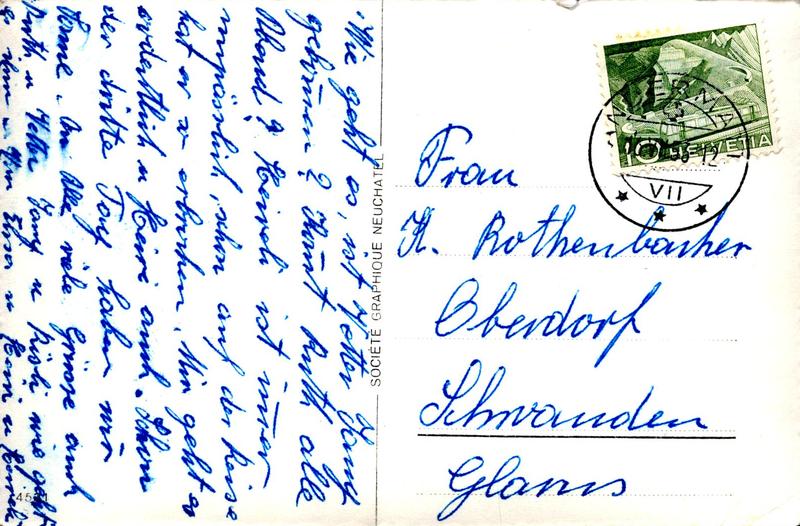 Wie geht es, ist Vetter
gekommen? Kommt Ruth alle
Abend? Heireli ist immer
unpässlich, schon auf der Reise
hat er x erbrochen. Mir geht es
ordentlich u Heiri auch. Schon
der dritte Tag haben wir
Sonne. An Alle viele Grüsse auch
Ruth u Vetter u Rösli wie geht
es ihm u Elsa u Heiri u
SOCIÉTÉ GRAPHIQUE NEUCHATEL
10 HELVETIA
ANDERMAT
VII
Frau
K. Rothenbacher
Oberdorf
Schwanden
Glarus